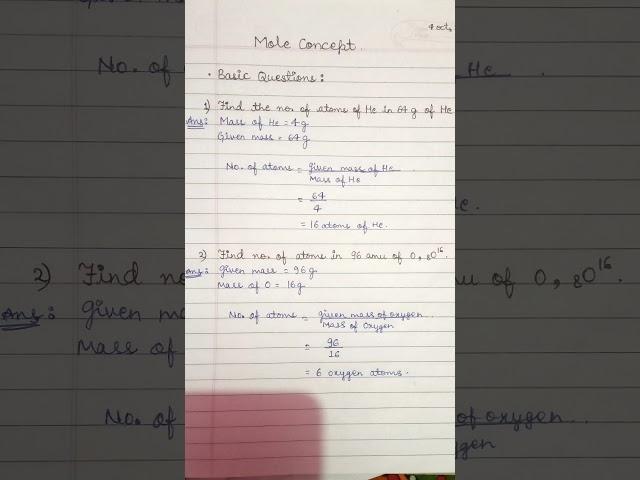 4 oct,
Mole Concept.
• Basic Questions:
1) Find the no. of atoms of He in 64 g of He
Ans: Mass of He = 4 g
Given mass = 64 g
No. of atoms = given mass of He
Mass of He
= 64
4
= 16 atoms of He.
2) Find no. of atoms in 96 amu of O, 8O16.
Ans: Given mass = 96 g
Mass of O = 16 g
No. of atoms = given mass of oxygen
Mass of Oxygen
= 96
16
= 6 oxygen atoms.
No. of
He
e.
2) Find no
u of O, 8O16.
Ans: Given m
Mass of
No. of
of oxygen
ygen